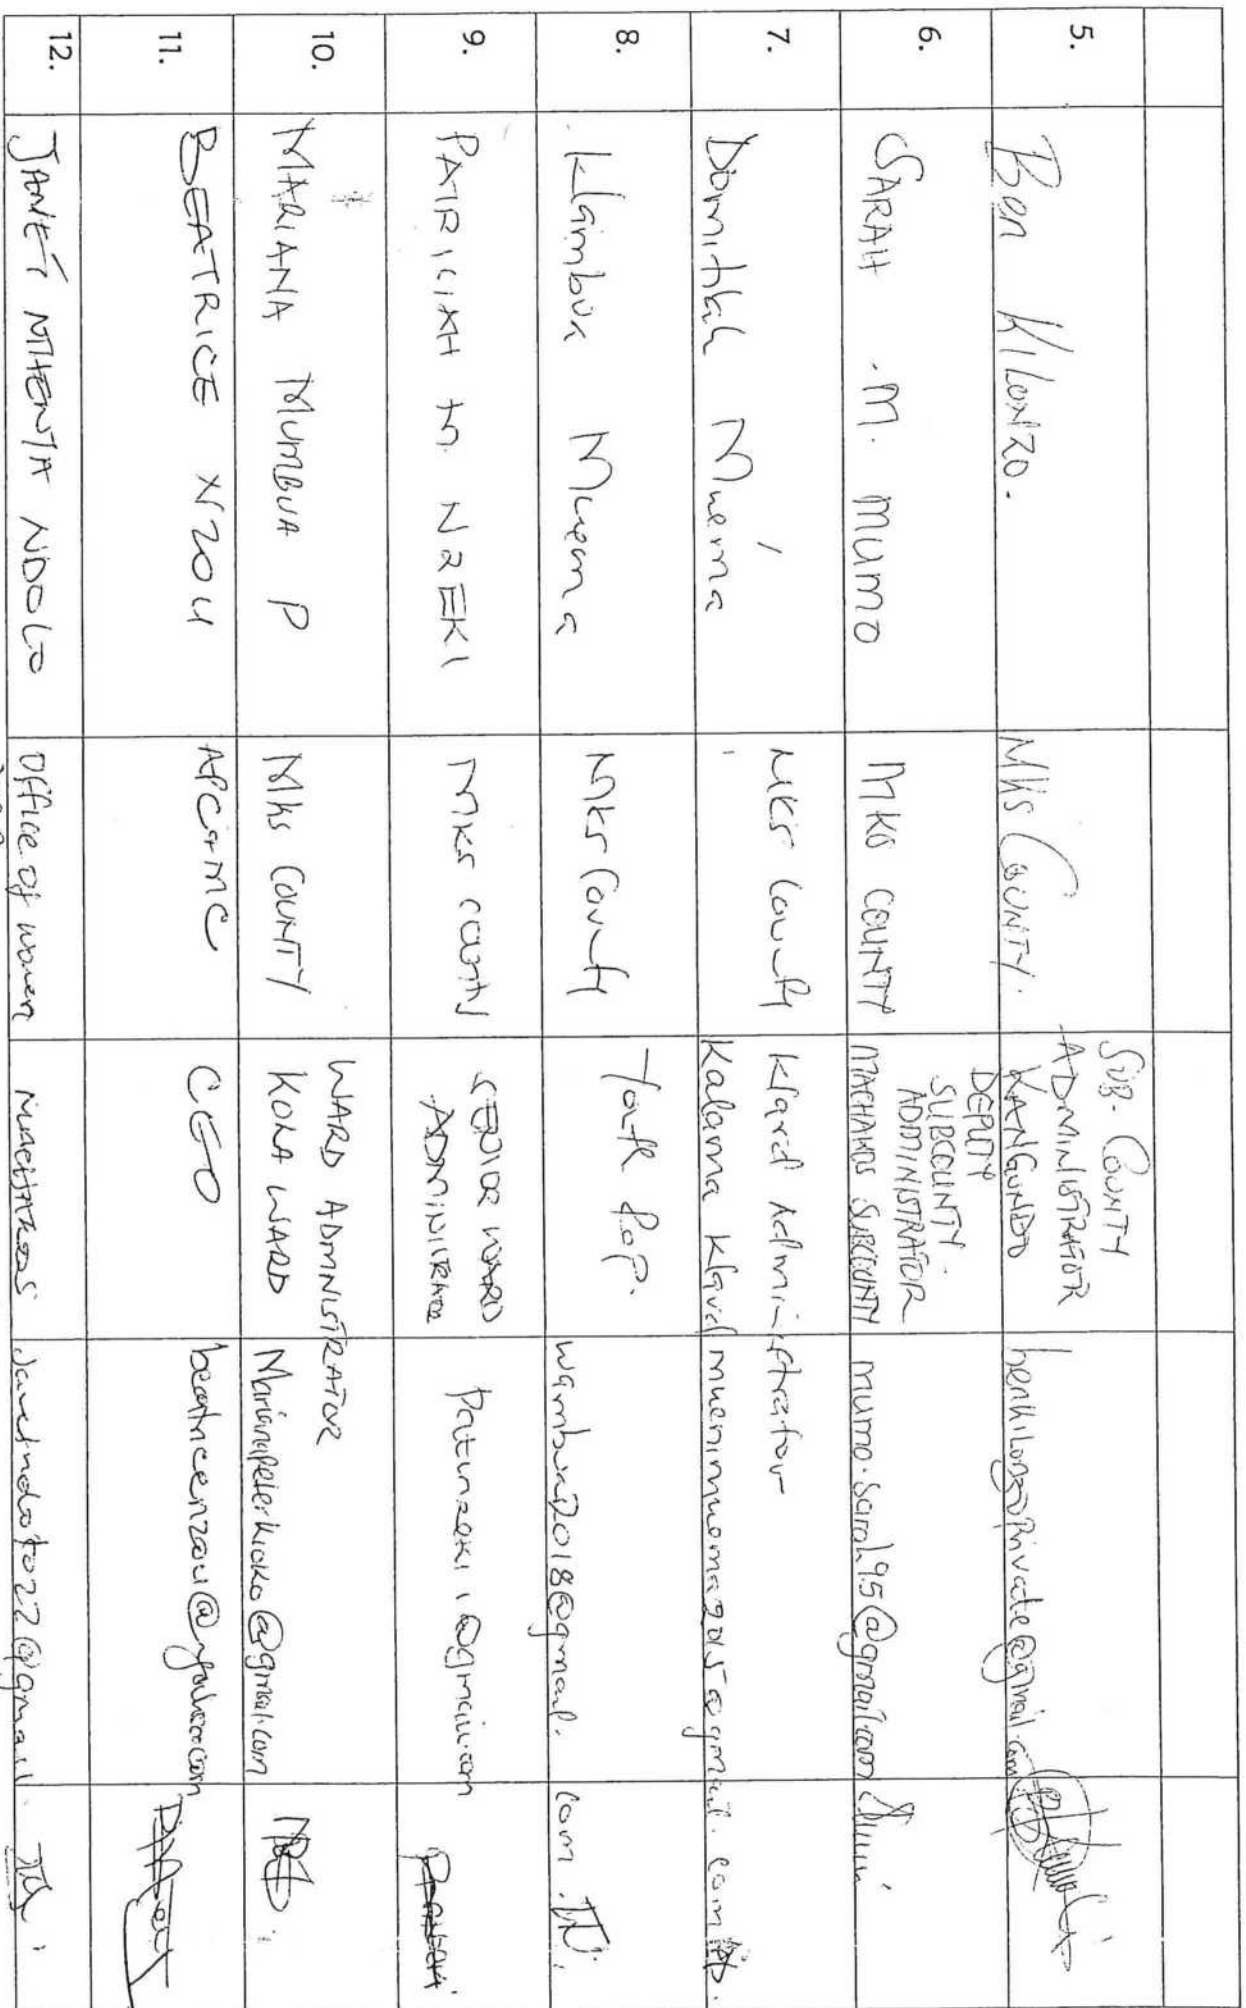 5.
Ben Kilonzo.
Mks County.
SUB-COUNTY
ADMINISTRATOR
KANGUNDO
benkilonzoprivate@gmail.com
6.
SARAH .M. MUMO
MKS COUNTY
DEPUTY
SUBCOUNTY
ADMINISTRATOR
MACHAKOS SUBCOUNTY
mumo.sarah95@gmail.com
7.
Domitilah Muema
MKS County
Ward Administrator
Kalama Ward
muenimuema2015@gmail.com
8.
Wambua Muema
Mks County
Youth Rep.
wambua2018@gmail.com
9.
PATRICIAH M. NZEKI
MKS COUNTY
SENIOR WARD
ADMINISTRATOR
Patunzeki1@gmail.com
10.
MARIANA MUMBUA P
Mks COUNTY
WARD ADMNISTRATOR
KOLA WARD
Marianapeterkioko@gmail.com
11.
BEATRICE NZOU
CEO
beatricenzou@yahoo.com
12.
JANET NTHENYA NDOLO
Office of women
MACHAKOS